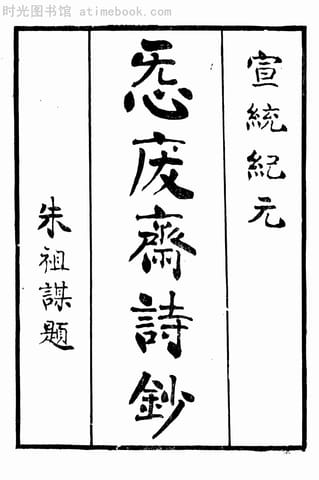 時光图书馆 - atimebook.com
宣統紀元
㤅庋齋詩鈔
朱祖謀題